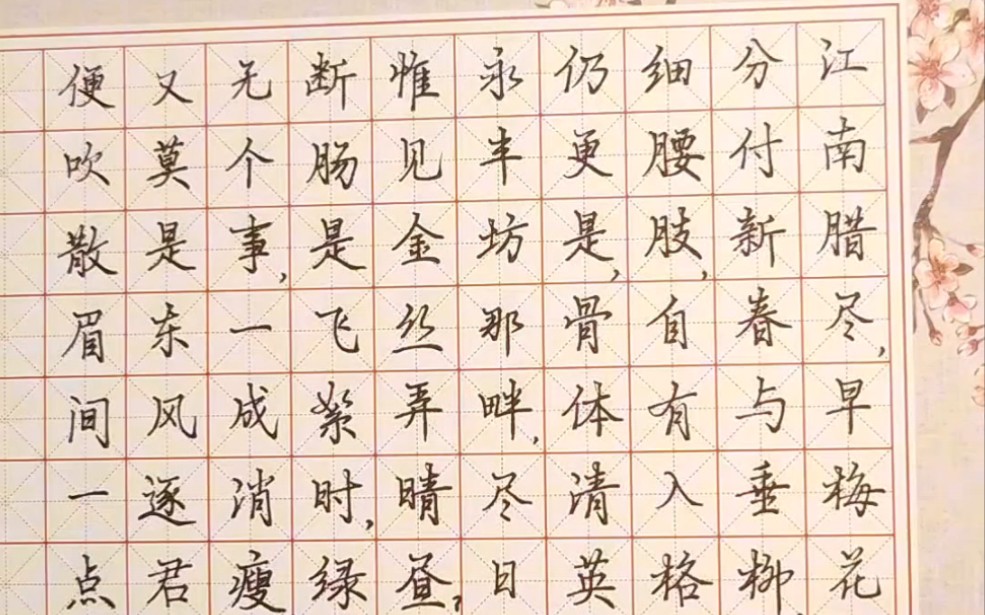 江南腊尽,早梅花
分付新春与垂柳
细腰肢,自有入格
仍更是,骨体清英
永丰坊那畔,尽日
惟见金丝弄晴昼,
断肠是飞絮时,绿
无个事,一成消瘦
又莫是东风逐君
便吹散眉间一点